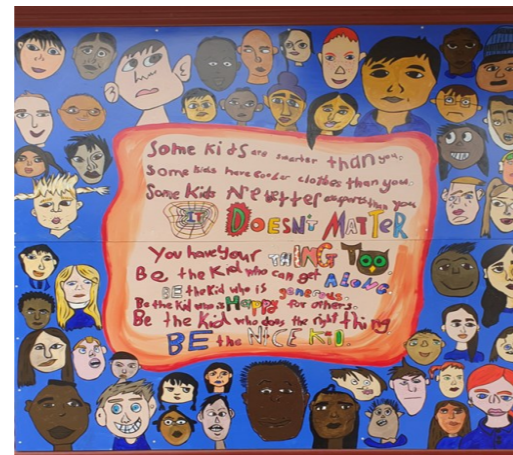 Some kids are smarter than you.
Some kids have cooler clothes than you.
Some kids R better at sports than you
IT DOESN'T MATTER
You have your THING TOO.
Be the Kid who can get ALONG.
BE the Kid who is generous.
Be the Kid who is Happy for others.
Be the Kid who does the right thing
BE the NiCE KiD.